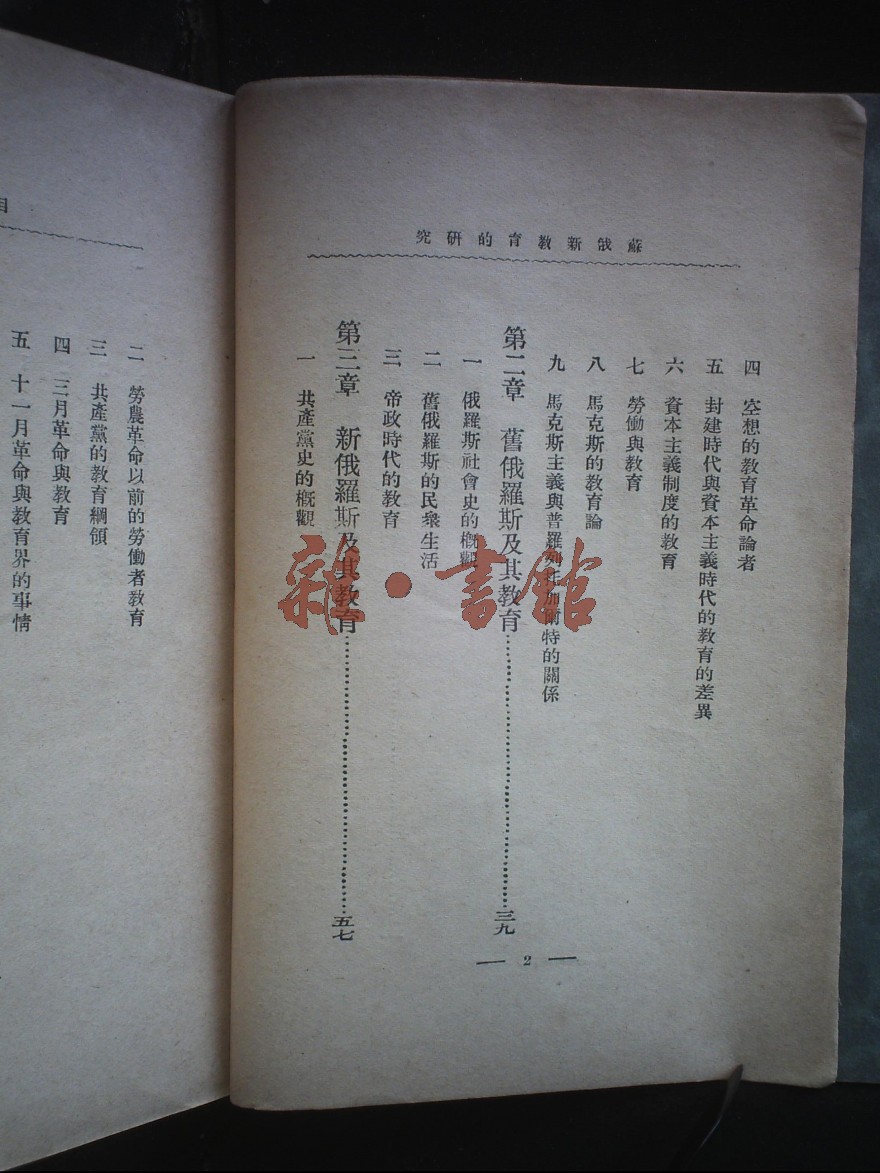 蘇俄新教育的研究
四 空想的教育革命論者
五 封建時代與資本主義時代的教育的差異
六 資本主義制度的教育
七 勞働與教育
八 馬克斯的教育論
九 馬克斯主義與普羅列托加爾特的關係
第二章 舊俄羅斯及其教育……三九
一 俄羅斯社會史的概觀
二 舊俄羅斯的民衆生活
三 帝政時代的教育
第三章 新俄羅斯及其教育……五七
一 共產黨史的概觀
— 2 —
目
二 勞農革命以前的勞働者教育
三 共產黨的教育綱領
四 三月革命與教育
五 十一月革命與教育界的事情
雜·書館